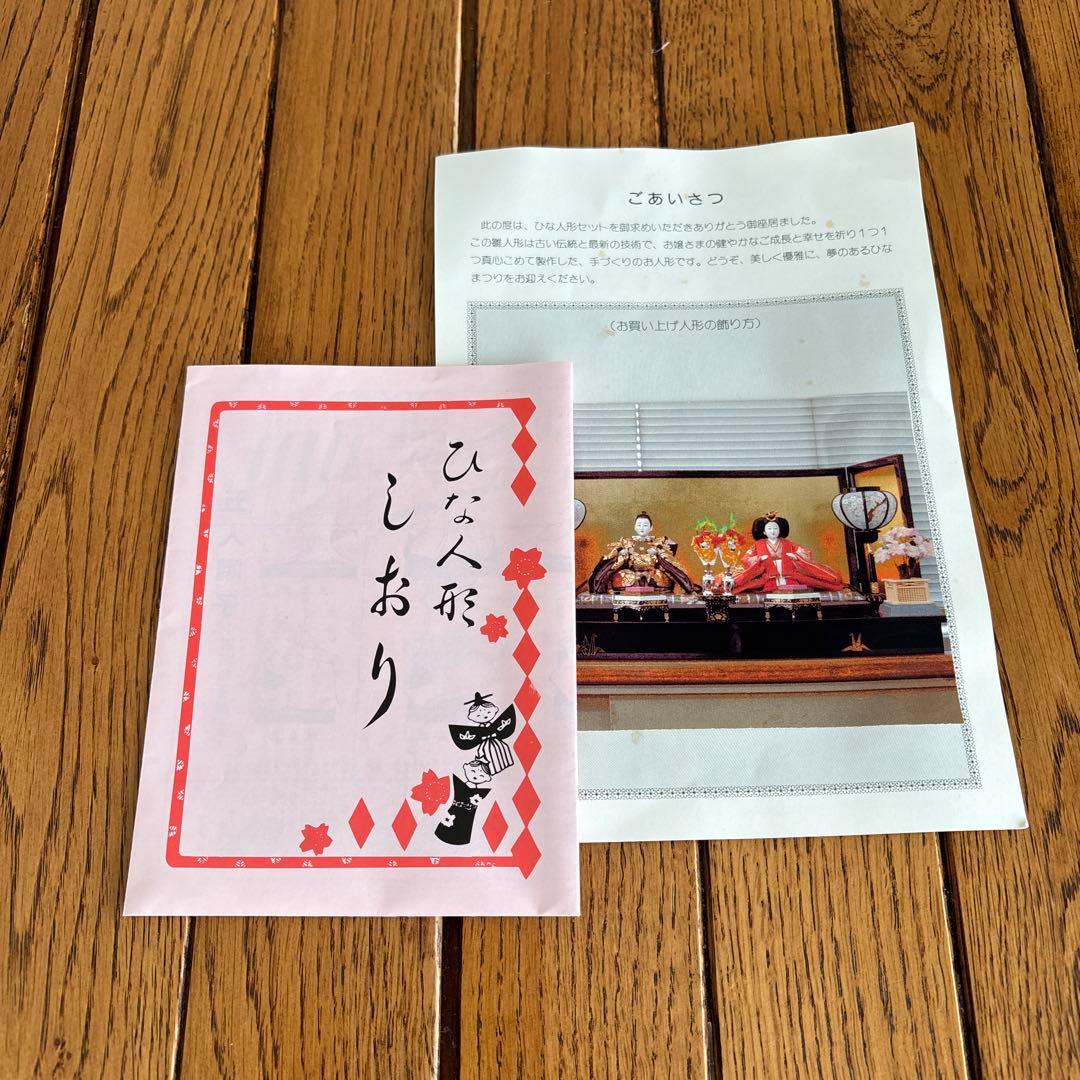 ひな人形
しおり
ごあいさつ
此の度は、ひな人形セットを御求めいただきありがとう御座居ました。
この雛人形は古い伝統と最新の技術で、お嬢さまの健やかなご成長と幸せを祈り1つ1
つ真心こめて製作した、手づくりのお人形です。どうぞ、美しく優雅に、夢のあるひな
まつりをお迎えください。
(お買い上げ人形の飾り方)